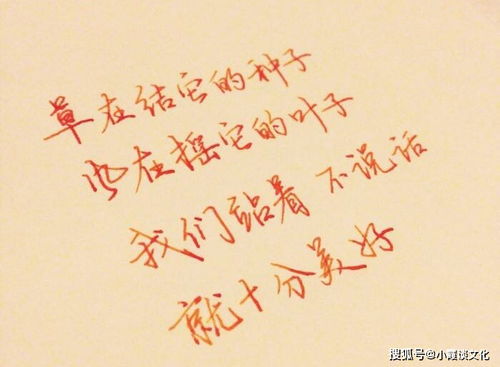 草在结它的种子
风在摇它的叶子
我们站着 不说话
就十分美好
搜狐号@小霞谈文化